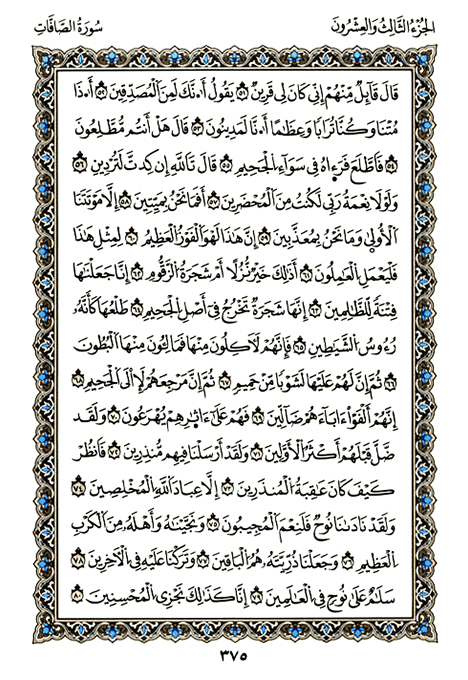 الجُزْءُ الثَّالِثُ وَالعِشْرُونَ
سُورَةُ الصَّافَّاتِ
قَالَ قَآئِلٌ مِّنْهُمْ إِنِّى كَانَ لِى قَرِينٌ ٥١ يَقُولُ أَءِنَّكَ لَمِنَ الْمُصَدِّقِينَ ٥٢ أَءِذَا
مِتْنَا وَكُنَّا تُرَابًا وَعِظَٰمًا أَءِنَّا لَمَدِينُونَ ٥٣ قَالَ هَلْ أَنتُم مُّطَّلِعُونَ
٥٤ فَاطَّلَعَ فَرَءَاهُ فِى سَوَآءِ الْجَحِيمِ ٥٥ قَالَ تَاللَّهِ إِن كِدتَّ لَتُرْدِينِ ٥٦
وَلَوْلَا نِعْمَةُ رَبِّى لَكُنتُ مِنَ الْمُحْضَرِينَ ٥٧ أَفَمَا نَحْنُ بِمَيِّتِينَ ٥٨ إِلَّا مَوْتَتَنَا
الْأُولَىٰ وَمَا نَحْنُ بِمُعَذَّبِينَ ٥٩ إِنَّ هَٰذَا لَهُوَ الْفَوْزُ الْعَظِيمُ ٦٠ لِمِثْلِ هَٰذَا
فَلْيَعْمَلِ الْعَامِلُونَ ٦١ أَذَٰلِكَ خَيْرٌ نُّزُلًا أَمْ شَجَرَةُ الزَّقُّومِ ٦٢ إِنَّا جَعَلْنَاهَا
فِتْنَةً لِّلظَّالِمِينَ ٦٣ إِنَّهَا شَجَرَةٌ تَخْرُجُ فِى أَصْلِ الْجَحِيمِ ٦٤ طَلْعُهَا كَأَنَّهُ
رُءُوسُ الشَّيَاطِينِ ٦٥ فَإِنَّهُمْ لَآكِلُونَ مِنْهَا فَمَالِئُونَ مِنْهَا الْبُطُونَ
٦٦ ثُمَّ إِنَّ لَهُمْ عَلَيْهَا لَشَوْبًا مِّنْ حَمِيمٍ ٦٧ ثُمَّ إِنَّ مَرْجِعَهُمْ لَإِلَى الْجَحِيمِ ٦٨
إِنَّهُمْ أَلْفَوْا۟ ءَابَآءَهُمْ ضَآلِّينَ ٦٩ فَهُمْ عَلَىٰ ءَاثَٰرِهِمْ يُهْرَعُونَ ٧٠ وَلَقَدْ
ضَلَّ قَبْلَهُمْ أَكْثَرُ الْأَوَّلِينَ ٧١ وَلَقَدْ أَرْسَلْنَا فِيهِم مُّنذِرِينَ ٧٢ فَانظُرْ
كَيْفَ كَانَ عَٰقِبَةُ الْمُنذَرِينَ ٧٣ إِلَّا عِبَادَ اللَّهِ الْمُخْلَصِينَ ٧٤
وَلَقَدْ نَادَىٰنَا نُوحٌ فَلَنِعْمَ الْمُجِيبُونَ ٧٥ وَنَجَّيْنَٰهُ وَأَهْلَهُ مِنَ الْكَرْبِ
الْعَظِيمِ ٧٦ وَجَعَلْنَا ذُرِّيَّتَهُ هُمُ الْبَاقِينَ ٧٧ وَتَرَكْنَا عَلَيْهِ فِى الْآخِرِينَ ٧٨
سَلَٰمٌ عَلَىٰ نُوحٍ فِى الْعَالَمِينَ ٧٩ إِنَّا كَذَٰلِكَ نَجْزِى الْمُحْسِنِينَ ٨٠
٣٧٥